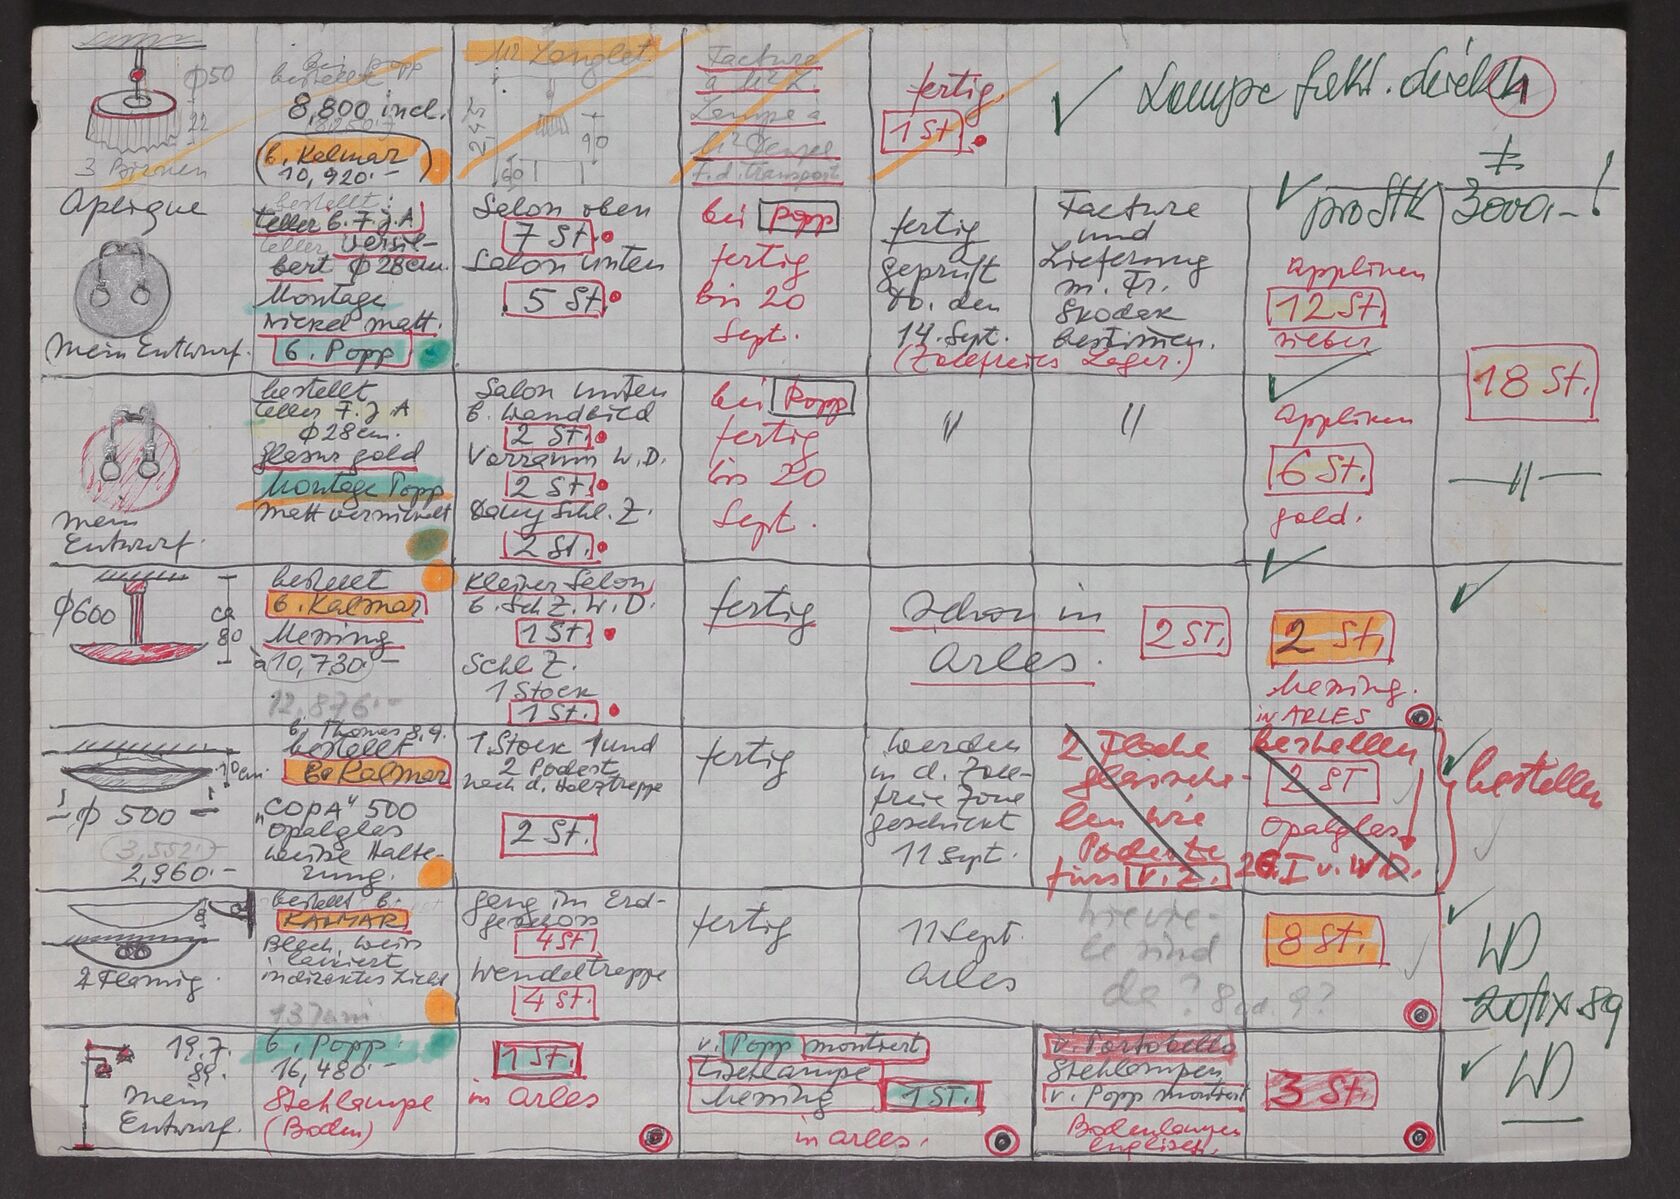 φ50
22
3 Birnen
bei Popp
bestellt
8,800 incl.
b. Kalmar
10,920.-
Mr Longlet
2,45
90
60
Facture
à Mr Z.
Lampe à
f.d. transport
fertig
1 St.
✓ Lampe fakt. direkt
1
Aplique
mein Entwurf.
bestellt:
teller b. F.J.A
teller versil-
bert φ 28cm.
Montage
Nickel matt.
b. Popp
Salon oben
7 St.
Salon unten
5 St.
bei Popp
fertig
bis 20
Sept.
fertig
geprüft
14. Sept.
(Zollfreies Lager.)
Facture
und
Lieferung
m. Fr.
Skodak
bestimmen.
✓ pro Stk 3000.- !
Appliken
12 St.
silber
18 St.
mein
Entwurf.
bestellt
teller F.J.A
φ 28cm.
glasur gold
Montage Popp
matt vernickelt
Salon unten
b. Wandbild
2 St.
Vorraum W.D.
2 St.
Schl. Z.
2 St.
bei Popp
fertig
bis 20
Sept.
"
"
✓
Appliken
6 St.
gold.
— " —
φ600
ca
80
bestellt
b. Kalmar
Messing
à 10,730.-
12,876.-
Kleiner Salon
b. Sch.Z. W.D.
1 St.
Schl Z.
1 Stock
1 St.
fertig
Schon in
Arles.
2 ST.
✓
2 St.
Messing.
in ARLES
✓
10cm.
φ 500
3,552.-
2,960.-
b. Thomas
bestellt
b. Kalmar
"COPA" 500
Opalglas
weisse Halte-
rung.
1. Stock 1 und
2 Podest
nach d. Holztreppe
2 St.
fertig
werden
in d. Zoll-
freie Zone
geschickt
11 Sept.
2 Flache
glasscha-
len wie
Podeste
fürs V. Z.
bestellen
2 ST
Opalglas
I v. W.D.
✓
bestellen
8
2 Flamig.
bestellt b.
KALMAR
Blech, weiss
lackiert
indirektes Licht
gang im Erd-
geschoss
4 St.
Wendeltreppe
4 St.
fertig
11 Sept.
Arles
wievie-
le sind
da? 8 od. 9?
8 St.
✓
WD
20/IX.89
19.7.
89.
mein
Entwurf.
b. Popp.
16,480.-
Stehlampe
(Boden)
1 St.
in Arles
v. Popp montiert
Tischlampe
Messing
1 ST.
in Arles.
v. Portobello
Stehlampen
v. Popp montiert
Bodenlampen
Englisch.
3 St.
✓ WD